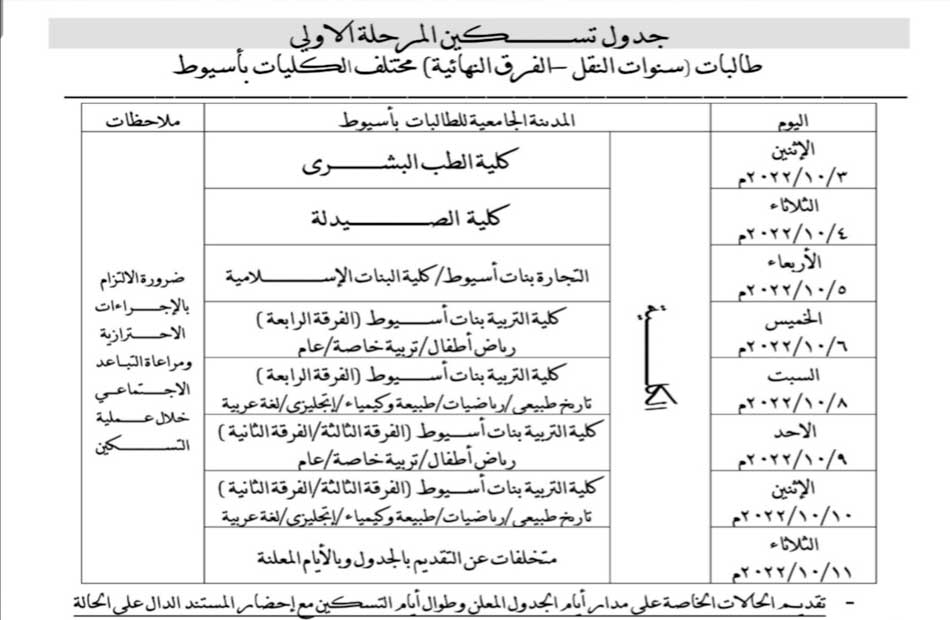 جدول تسكين المرحلة الاولي
طالبات (سنوات النقل -الفرق النهائية) مختلف الكليات بأسيوط
اليوم
المدينة الجامعية للطالبات بأسيوط
ملاحظات
الإثنين
٢٠٢٢/١٠/٣م
كلية الطب البشرى
الثلاثاء
٢٠٢٢/١٠/٤م
كلية الصيدلة
الأربعاء
٢٠٢٢/١٠/٥م
التجارة بنات أسيوط/كلية البنات الإسلامية
الخميس
٢٠٢٢/١٠/٦م
كلية التربية بنات أسيوط (الفرقة الرابعة)
رياض أطفال/تربية خاصة/عام
السبت
٢٠٢٢/١٠/٨م
كلية التربية بنات أسيوط (الفرقة الرابعة)
تاريخ طبيعى/رياضيات/طبيعة وكيمياء/إنجليزى/لغة عربية
الاحد
٢٠٢٢/١٠/٩م
كلية التربية بنات أسيوط (الفرقة الثالثة/الفرقة الثانية)
رياض أطفال/تربية خاصة/عام
الإثنين
٢٠٢٢/١٠/١٠م
كلية التربية بنات أسيوط (الفرقة الثالثة/الفرقة الثانية)
تاريخ طبيعى/رياضيات/طبيعة وكيمياء/إنجليزى/لغة عربية
الثلاثاء
٢٠٢٢/١٠/١١م
متخلفات عن التقديم بالجدول وبالأيام المعلنة
ضرورة الالتزام
بالإجراءات
الاحترازية
ومراعاة التباعد
الاجتماعي
خلال عملية
التسكين
- تقديم الحالات الخاصة على مدار أيام الجدول المعلن وطوال أيام التسكين مع إحضار المستند الدال على الحالة